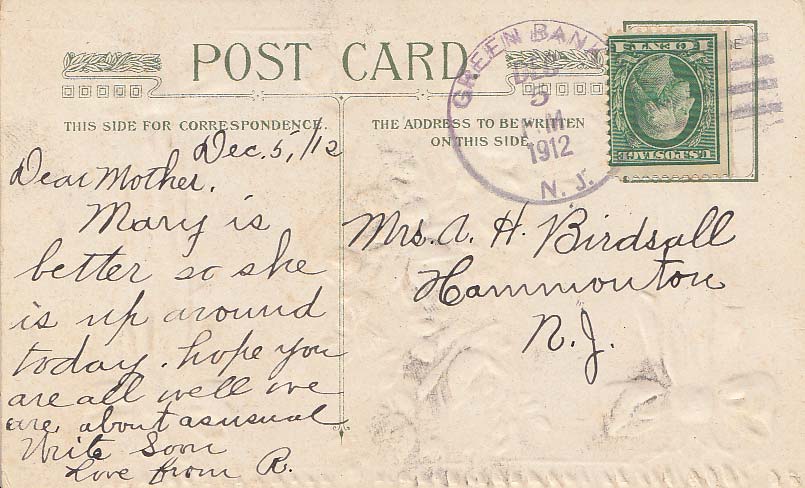 POST CARD
THIS SIDE FOR CORRESPONDENCE.
THE ADDRESS TO BE WRITTEN
ON THIS SIDE
GREEN BANK
DEC
5
PM
1912
N. J.
U.S. POSTAGE
1 CENT 1
Dec. 5, /12
Dear Mother,
Mary is
better so she
is up around
today. hope you
are all well we
are about as usual
Write Soon
Love from R.
Mrs. A. H. Birdsall
Hammonton
N. J.